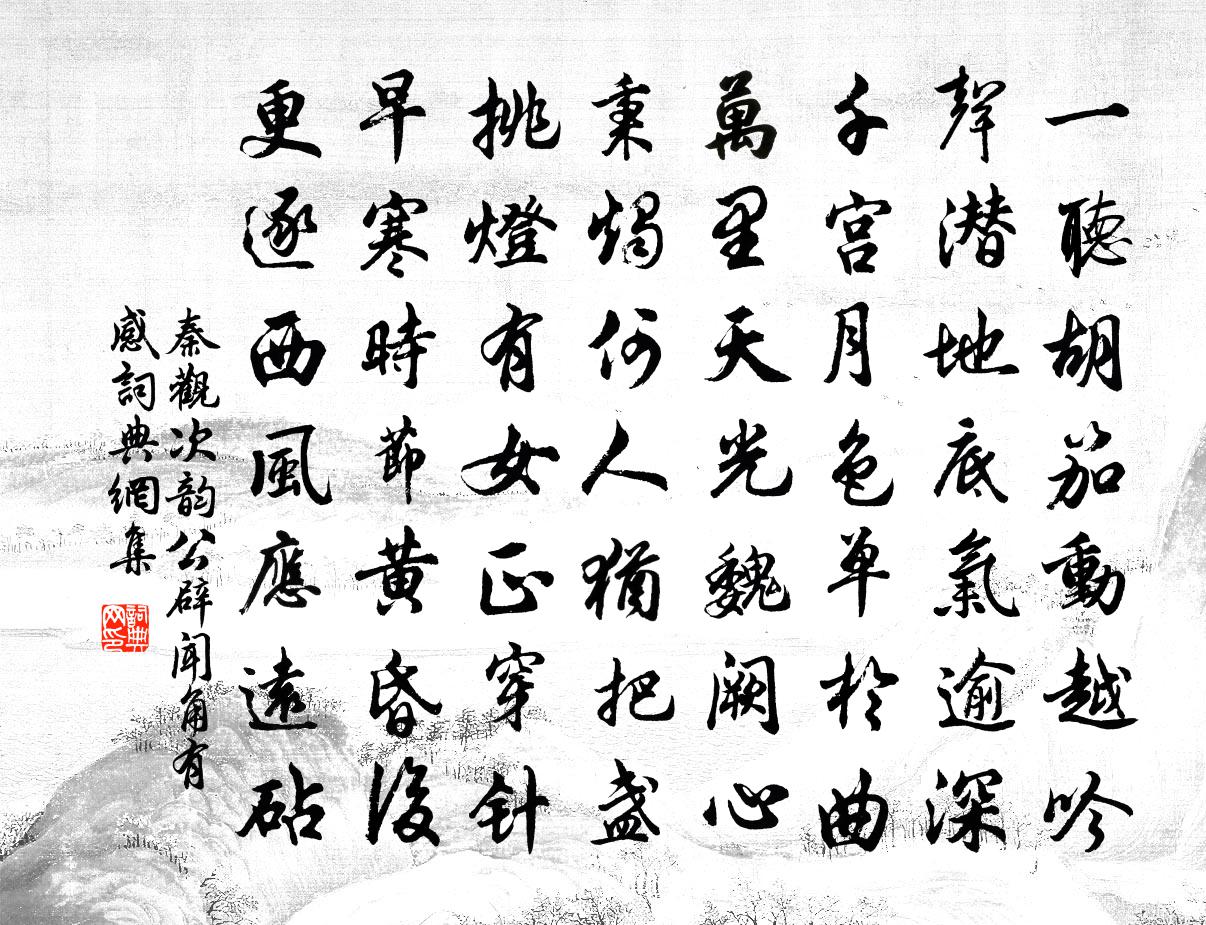 一聽胡笳動越吟
聲潜地底氣逾深
千宫月色單於曲
萬里天光魏闕心
秉燭何人猶把盞
挑燈有女正穿针
早寒時節黄昏後
更逐西風應遠砧
秦觀次韵公辟聞角有
感詞典網集
詞典网印